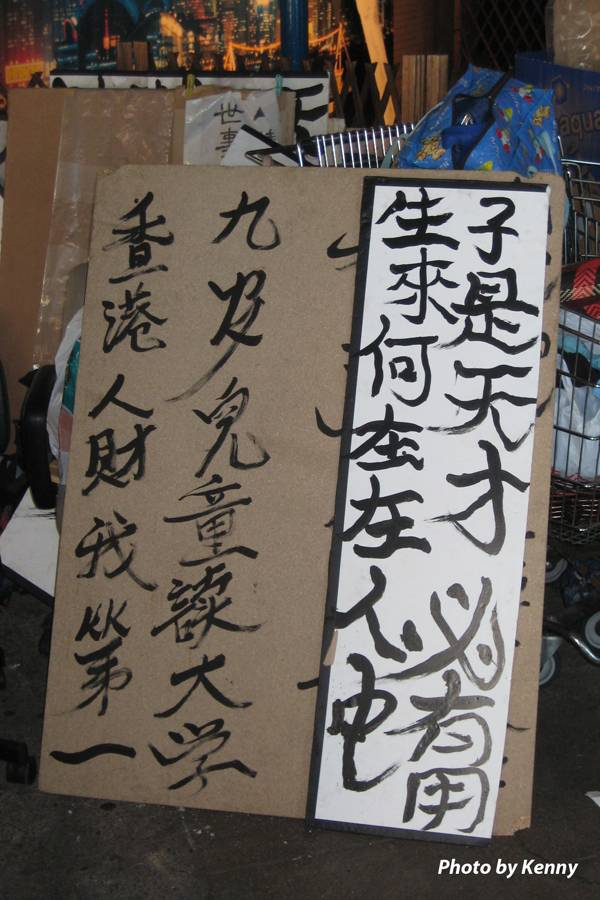 世事
aqua
子是天才必有用
生來何在在人也
九岁兒童讀大学
香港人財我第一
Photo by Kenny